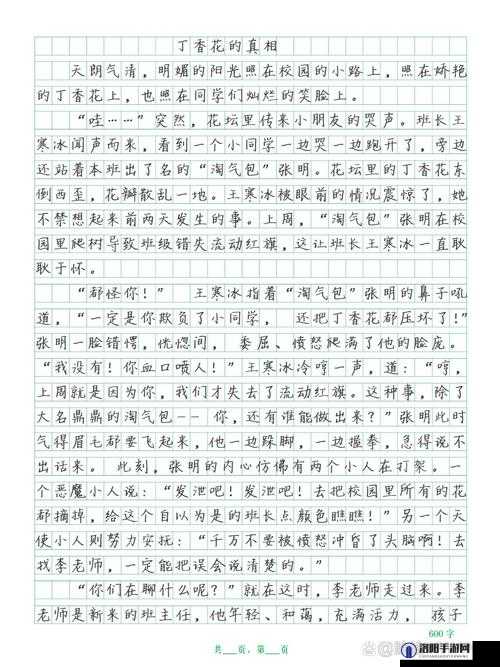 丁香花的真相
天朗气清,明媚的阳光照在校园的小路上,照在娇艳
的丁香花上,也照在同学们灿烂的笑脸上。
“哇……”突然,花坛里传来小朋友的哭声。班长王
寒冰闻声而来,看到一个小同学一边哭一边跑开了,旁边
还站着本班出了名的“淘气包”张明。花坛里的丁香花东
倒西歪,花瓣散乱一地。王寒冰被眼前的情况震惊了,她
不禁想起来前两天发生的事。上周,“淘气包”张明在校
园里爬树导致班级错失流动红旗,这让班长王寒冰一直耿
耿于怀。
“都怪你!” 王寒冰指着“淘气包”张明的鼻子吼
道,“一定是你欺负了小同学, 还把丁香花都压坏了!”
张明一脸错愕,恍惚间, 委屈、愤怒爬满了他的脸庞。
“我没有!你血口喷人!”王寒冰冷哼一声,道:“哼,
上周就是因为你,我们才失去了流动红旗。这种事,除了
大名鼎鼎的淘气包--你,还有谁能做出来?”张明此时
气得眉毛都要飞起来,他一边跺脚,一边握拳,急得说不
出话来。 此刻,张明的内心仿佛有两个小人在打架。一
个恶魔小人说:“发泄吧!发泄吧!去把校园里所有的花
都摘掉,给这个自以为是的班长点颜色瞧瞧!”另一个天
使小人则努力安抚:“千万不要被愤怒冲昏了头脑啊!去
找李老师,一定能把误会说清楚的。”
“你们在聊什么呢?”就在这时,李老师走过来。李
老师是新来的班主任,他年轻、和蔼,充满活力, 孩子
600字
共 页,第 页
洛阳手游网